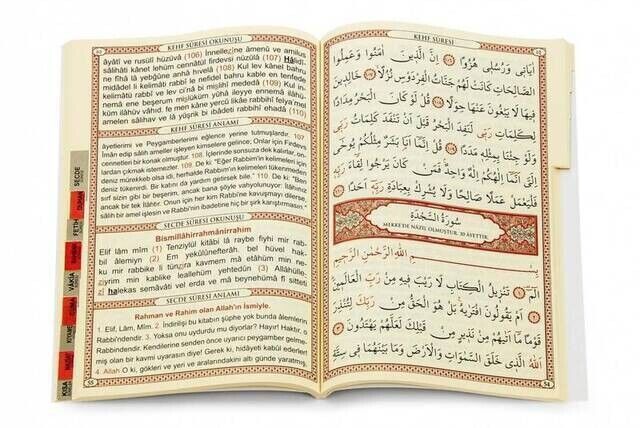 KEHF SÛRESİ OKUNUŞU
âyâtî ve rusulî hüzüvâ (106) İnnellezine âmenû ve amilus
sâlihâti kânet lehüm cennâtül firdevsi nüzülâ (107) Hâlidî-
ne fîhâ lâ yebğûne anhâ hıvelâ (108) Kul lev kânel bahru
midâdel li kelimâti rabbî le nefidel bahru kable en tenfede
kelimâtü rabbî ve lev ci'nâ bi mislihî mededâ (109) Kul in-
nemâ ene beşerum mislüküm yûhâ ileyye ennemâ ilâhü-
küm ilâhüv vâhid, fe men kâne yercû likâe rabbihî felya'mel
amelen sâlihav ve lâ yüşrik bi ıbâdeti rabbihî ehadâ (110)
KEHF SÛRESİ ANLAMI
âyetlerimi ve Peygamberlerimi eğlence yerine tutmuşlardır. 107
İman edip sâlih ameller işleyen kimselere gelince; Onlar için Firdevs
cennetleri bir konak olmuştur. 108. İçlerinde sonsuza dek kalırlar, on-
lardan çıkmak istemezler. 109. De ki: "Eğer Rabbim'in kelimeleri için
deniz mürekkeb olsa idi, herhalde Rabbim'in kelimeleri tükenmeden
deniz tükenirdi. Bir katını da yardım getirsek bile." 110. De ki: "Ben
sırf sizin gibi bir beşerim, ancak bana şöyle vahyolunuyor: İlâhınız
ancak bir tek ilâhtır. Onun için her kim Rabbi'ne kavuşmayı dilerse,
sâlih bir amel işlesin ve Rabbi'nin ibadetine hiç bir şirk karıştırmasın."
SECDE SÛRESİ OKUNUŞU
Bismillâhirrahmânirrahim
Elif lâm mîm (1) Tenziylül kitâbi lâ raybe fîyhi mir rab-
bil âlemiyn (2) Em yekûlûnefterâh, bel hüvel hak-
ku mir rabbike li tünzira kavmem mâ etâhüm min ne-
ziyrim min kablike leallehüm yehtedûn (3) Allâhülle-
zî halekas semâvâti vel erda ve mâ beynehümâ fî sitteti
SECDE SÛRESİ ANLAMI
Rahman ve Rahim olan Allah'ın İsmiyle.
1. Elif, Lâm, Mîm. 2. İndirilişi bu kitabın şüphe yok bunda âlemlerin
Rabbi'ndendir. 3. Yoksa onu uydurdu mu diyorlar? Hayır! Haktır, o
Rabbi'ndendir. Kendilerine senden önce uyarıcı peygamber gelme-
miş olan bir kavmi uyarasın diye! Gerek ki, hidâyeti kabûl ederler!
4. Allah O ki, gökleri ve yeri ve aralarındakini altı günde yaratmış,
KEHF SÛRESİ
اٰيَاتٖى وَرُسُلٖى هُزُوًا ﴿١٠٦﴾ اِنَّ الَّذٖينَ اٰمَنُوا وَعَمِلُوا
الصَّالِحَاتِ كَانَتْ لَهُمْ جَنَّاتُ الْفِرْدَوْسِ نُزُلًا ﴿١٠٧﴾ خَالِدٖينَ
فٖيهَا لَا يَبْغُونَ عَنْهَا حِوَلًا ﴿١٠٨﴾ قُلْ لَوْ كَانَ الْبَحْرُ مِدَادًا
لِكَلِمَاتِ رَبّٖى لَنَفِدَ الْبَحْرُ قَبْلَ اَنْ تَنْفَدَ كَلِمَاتُ رَبّٖى
وَلَوْ جِئْنَا بِمِثْلِهٖ مَدَدًا ﴿١٠٩﴾ قُلْ اِنَّمَا اَنَا بَشَرٌ مِثْلُكُمْ يُوحٰٓى
اِلَىَّ اَنَّمَا اِلٰهُكُمْ اِلٰهٌ وَاحِدٌ فَمَنْ كَانَ يَرْجُوا لِقَاءَ رَبِّهٖ
فَلْيَعْمَلْ عَمَلًا صَالِحًا وَلَا يُشْرِكْ بِعِبَادَةِ رَبِّهٖ اَحَدًا ﴿١١٠﴾
سُورَةُ السَّجْدَةِ
MEKKE'DE NÂZİL OLMUŞTUR. 30 ÂYETTİR.
بِسْمِ اللّٰهِ الرَّحْمٰنِ الرَّحٖيمِ
الٓمٓ ﴿١﴾ تَنْزٖيلُ الْكِتَابِ لَا رَيْبَ فٖيهِ مِنْ رَبِّ الْعَالَمٖينَ
﴿٢﴾ اَمْ يَقُولُونَ افْتَرٰيهُ بَلْ هُوَ الْحَقُّ مِنْ رَبِّكَ لِتُنْذِرَ
قَوْمًا مَا اَتٰيهُمْ مِنْ نَذٖيرٍ مِنْ قَبْلِكَ لَعَلَّهُمْ يَهْتَدُونَ ﴿٣﴾
اَللّٰهُ الَّذٖى خَلَقَ السَّمٰوَاتِ وَالْاَرْضَ وَمَا بَيْنَهُمَا فٖى سِتَّةِ
SECDE
DUHAN
FETİH
VÂKIA
55
54